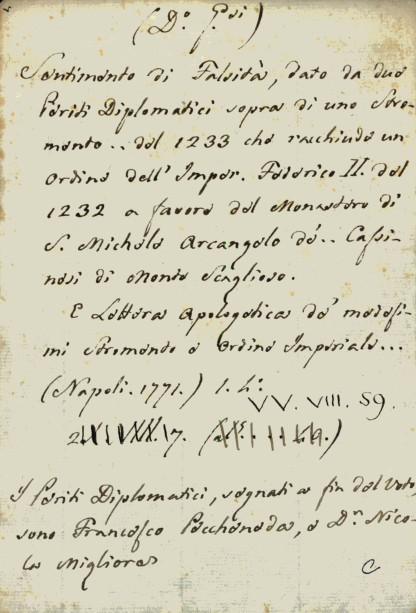 (D.º G.ⁿⁱ)
Sentimento di Falsità, dato da due
Periti Diplomatici sopra di uno Stro-
mento.. del 1233 che racchiude un
ordine dell' Imper. Federico II. del
1232 a favore del Monastero di
S. Michele Arcangelo de'.. Cassi-
nesi di Monte Scaglioso.
E Lettera Apologetica de' medesi-
mi Stromento e Ordine Imperiale...
(Napoli. 1771.)
VV. VIII. 59.
I Periti Diplomatici, segnati a fin del Voto
sono Francesco Peccheneda, e D.ⁿ Nico-
la Migliore